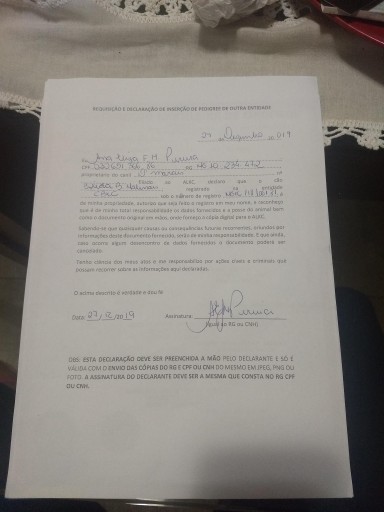 REQUISIÇÃO E DECLARAÇÃO DE INSERÇÃO DE PEDIGREE DE OUTRA ENTIDADE
27 de Dezembro de 2019
Eu
CPF RG
proprietário do canil
filiado ao ALKC, declaro que o cão
registrado na entidade
sob o número de registro é
de minha propriedade, autorizo que seja feito o registro em meu nome, e reconheço
que é de minha total responsabilidade os dados fornecidos e a posse do animal bem
como o documento original em mãos, onde forneço a cópia digital para a ALKC.
Sabendo-se que quaisquer causas ou consequências futuras recorrentes, oriundas por
informações deste documento fornecido, estão de minha responsabilidade. E que ainda,
caso ocorra algum desencontro de dados fornecidos o documento poderá ser
cancelado.
Tenho ciência dos meus atos e me responsabilizo por ações cíveis e criminais que
possam recorrer sobre as informações aqui declaradas.
O acima descrito é verdade e dou fé
Data: 27/12/2019 Assinatura:
(igual ao RG ou CNH)
OBS: ESTA DECLARAÇÃO DEVE SER PREENCHIDA A MÃO PELO DECLARANTE E SÓ É
VÁLIDA COM O ENVIO DAS CÓPIAS DO RG E CPF OU CNH DO MESMO EM JPEG, PNG OU
FOTO. A ASSINATURA DO DECLARANTE DEVE SER A MESMA QUE CONSTA NO RG CPF
OU CNH.